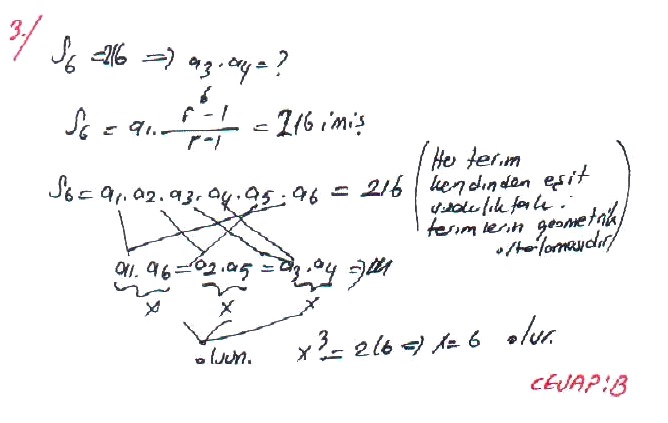 3./
S₆ = 216 ⇒ a₃ . a₄ = ?
S₆ = a₁ . (r⁶ - 1)/(r - 1) = 216 imiş
S₆ = a₁ . a₂ . a₃ . a₄ . a₅ . a₆ = 216
(Her terim
kendinden eşit
uzaklıktaki
terimlerin geometrik
ortalamasıdır)
a₁ . a₆ = a₂ . a₅ = a₃ . a₄ ⇒
x x x
olsun. x³ = 216 ⇒ x = 6 olur.
CEVAP: B